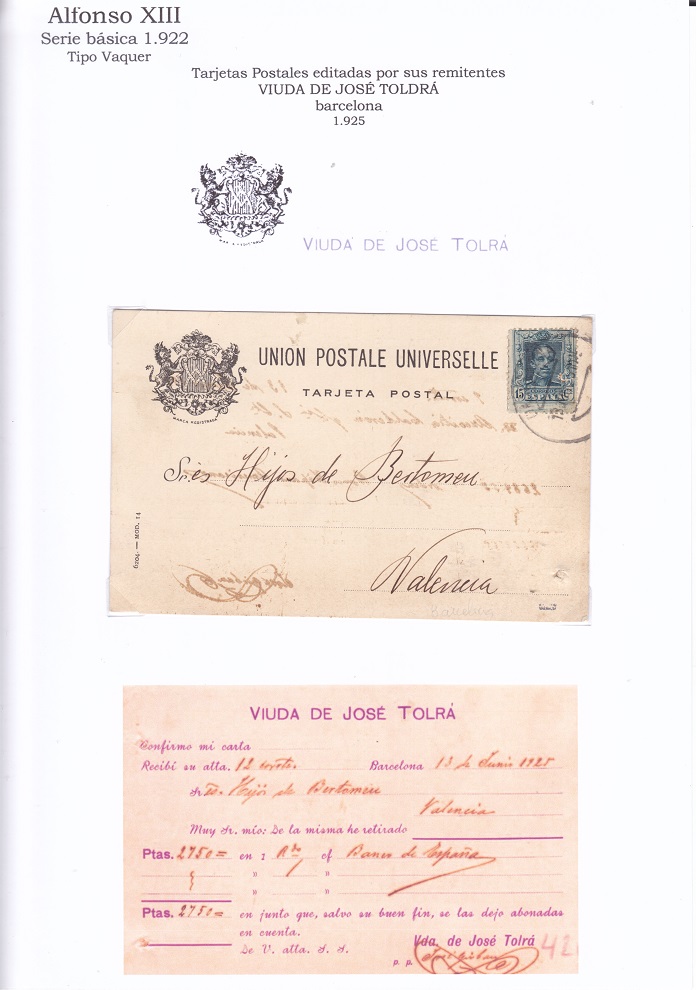 Alfonso XIII
Serie básica 1.922
Tipo Vaquer
Tarjetas Postales editadas por sus remitentes
VIUDA DE JOSÉ TOLDRÁ
barcelona
1.925
MARCA REGISTRADA
VIUDA DE JOSÉ TOLRÁ
UNION POSTALE UNIVERSELLE
TARJETA POSTAL
MARCA REGISTRADA
15 Cs
ESPAÑA
Sres Hijos de Bertomeu
Valencia
6204. — MOD. 14
Barcelona
VIUDA DE JOSÉ TOLRÁ
Confirmo mi carta
Recibí su atta. 12 corrte. Barcelona 13 de Junio 1925
Sr Hijos de Bertomeu
Valencia
Muy Sr. mío: De la misma he retirado
Ptas. 2750= en : Rm/ c/ Banco de España
" "
" "
Ptas. 2750= en junto que, salvo su buen fin, se las dejo abonadas
en cuenta.
De V. atta. S. S.
Vda. de José Tolrá
p. p.